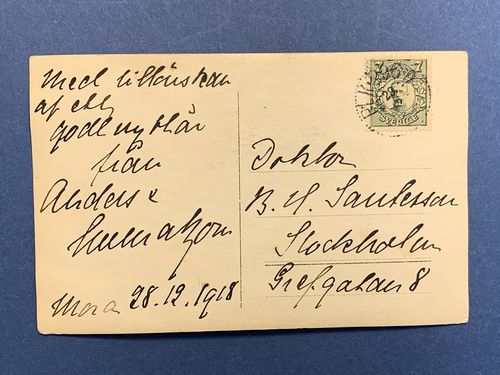 Med tillönskan
af ett
godt nytt år
från
Anders &
Emma Zorn
Mora 28.12.1918
7
SVERIGE
Doktor
B. H. Santesson
Stockholm
Grefgatan 8